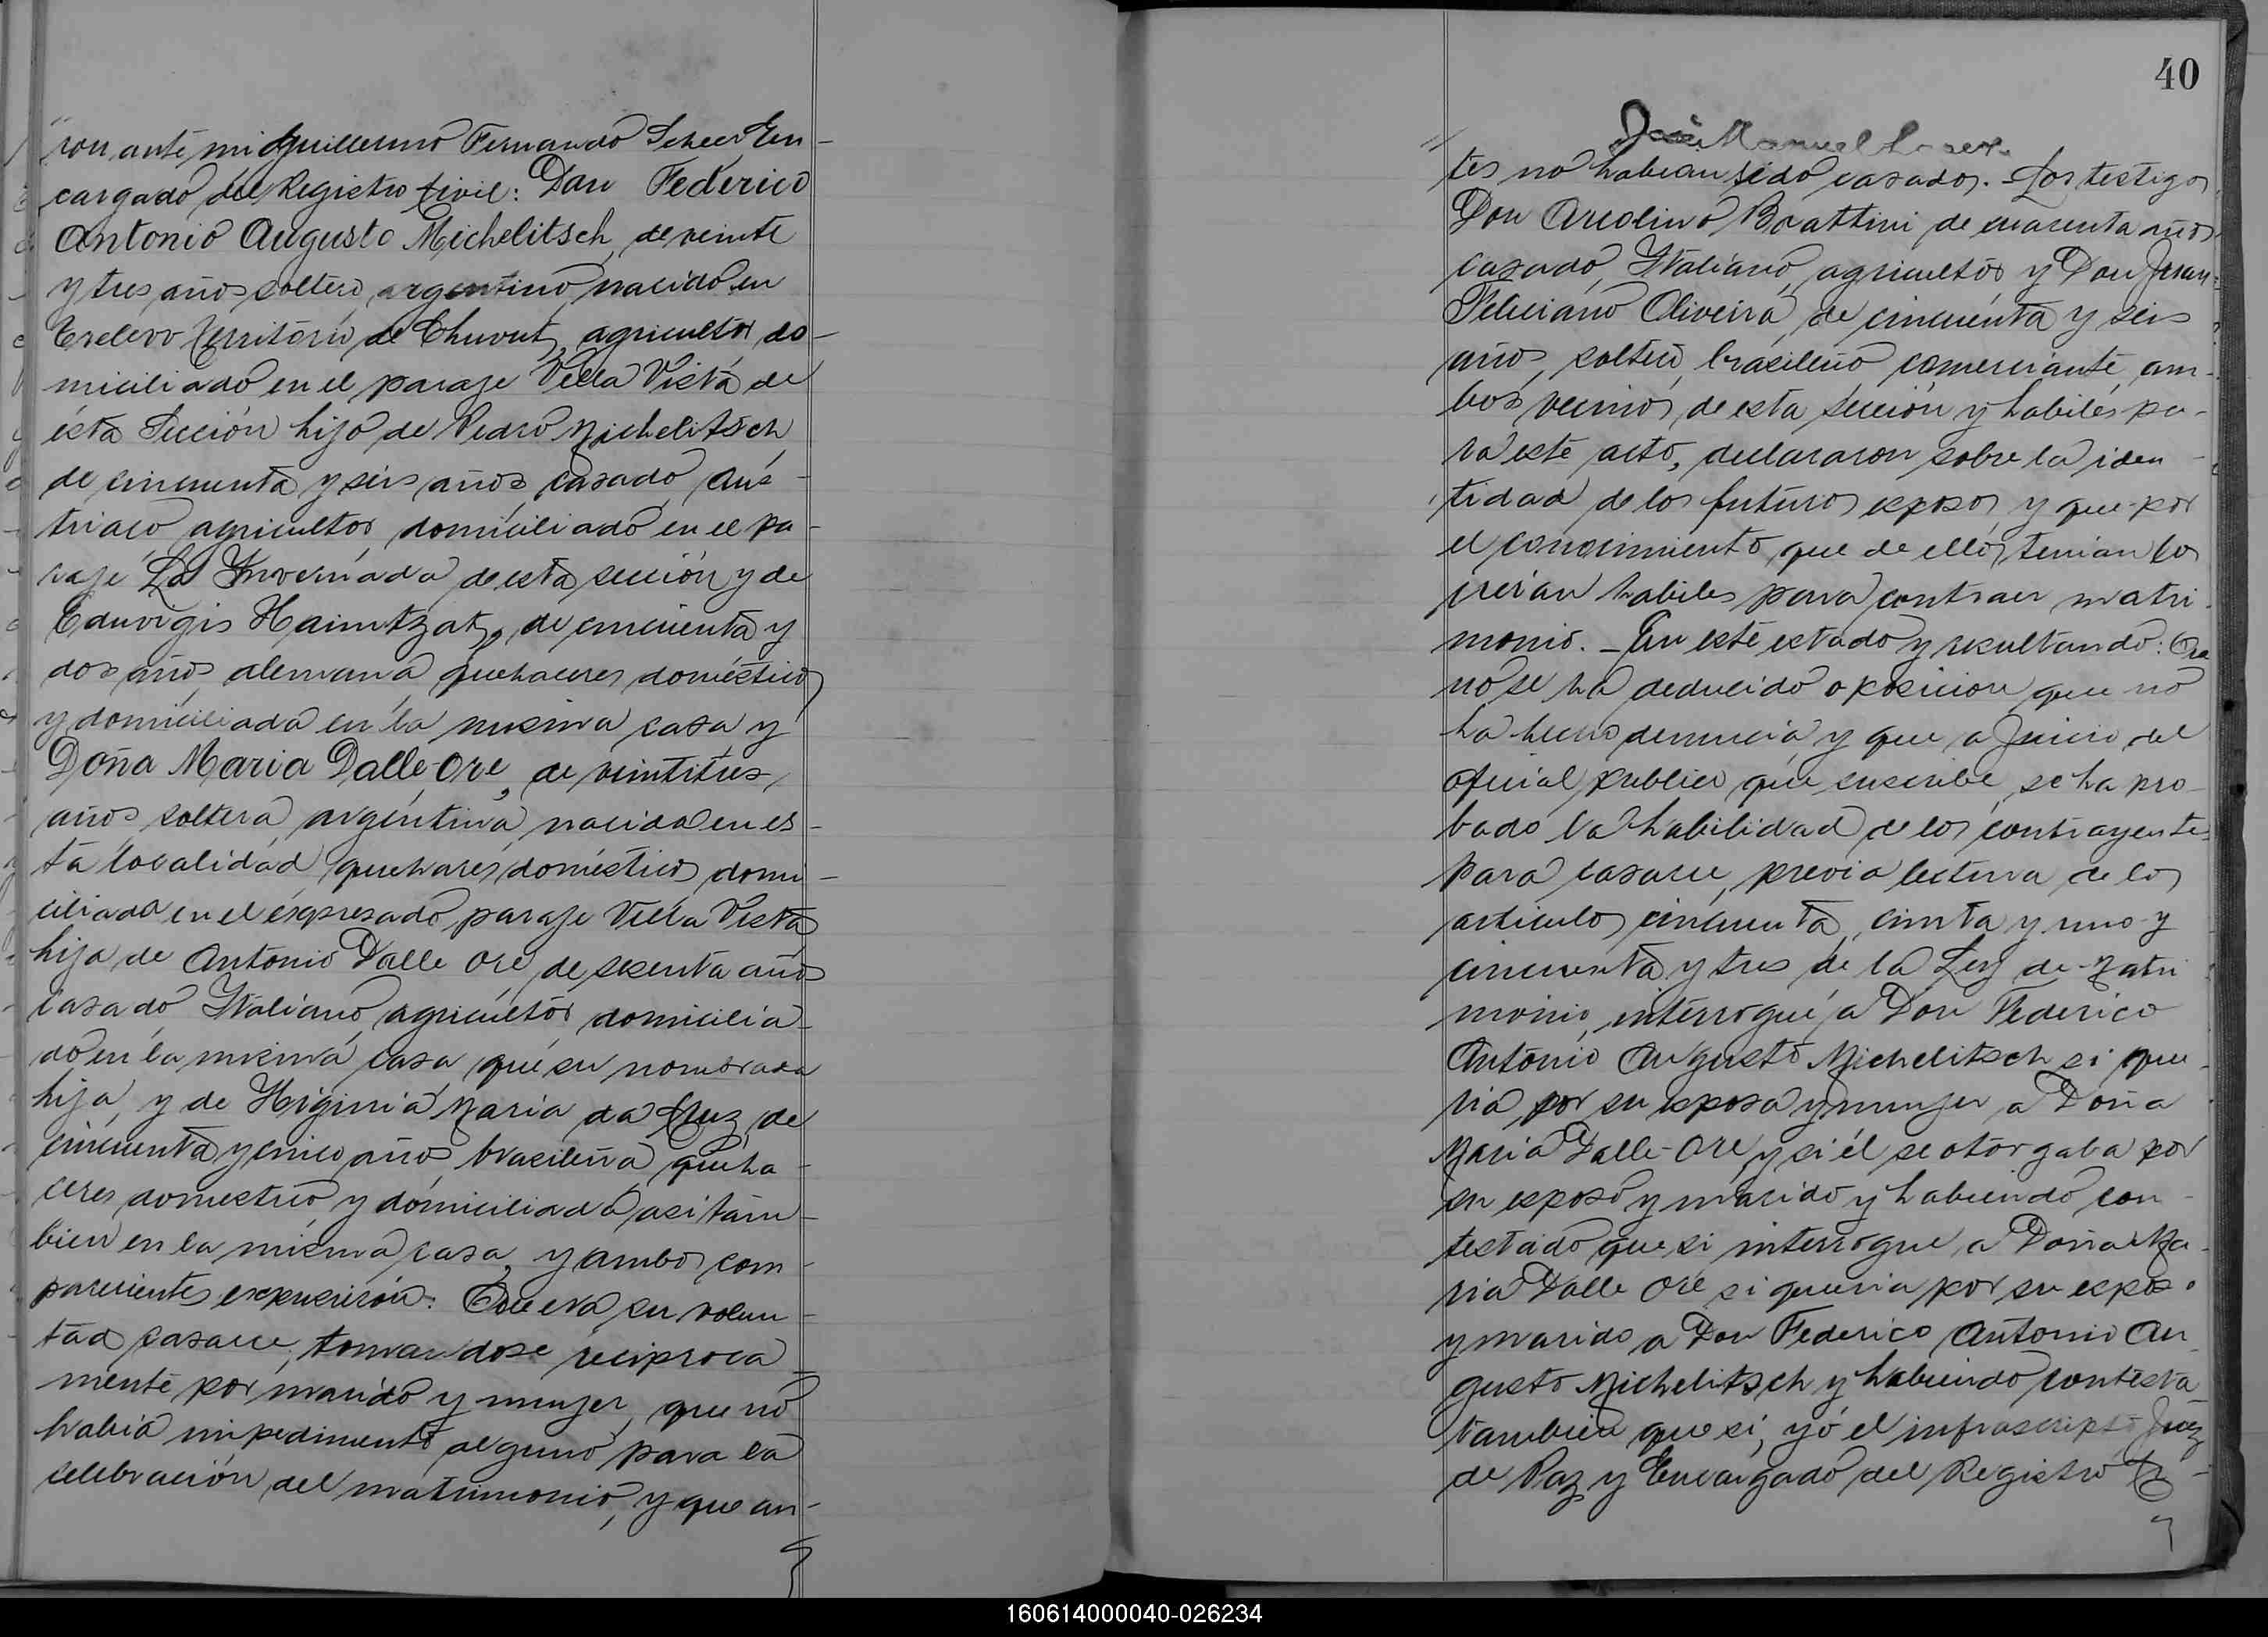 ron ante mi Guillermo Fernando Scheer En-
cargado del Registro Civil: Don Federico
Antonio Augusto Michelitsch, de veinte
y tres años soltero, argentino, nacido en
Territorio de Chuvut, agricultor do-
miciliado en el paraje Villa Vista de
esta Sección hijo de Pedro Michelitsch
de cincuenta y seis años, casado, aus-
triaco agricultor domiciliado en el pa-
raje La Invernada de esta sección y de
Eduvigis Haintzat, de cincuenta y
dos años alemana quehaceres domésticos
y domiciliada en la misma casa y
Doña Maria Dalle-Ore, de veintitres
años soltera argentina nacida en es-
ta localidad quehaceres domésticos domi-
ciliada en el expresado paraje Villa Vista
hija de Antonio Dalle Ore de sesenta años
casado Italiano, agricultor domicilia-
do en la misma casa que su nombrada
hija, y de Higinia Maria da Cruz, de
cincuenta y cinco años brasileña queha-
ceres domestico y domiciliada asi tam-
bien en la misma casa, y ambos com-
parecientes expusieron: Que era su volun-
tad casarse, tomandose reciproca
mente por marido y mujer, que no
habia impedimento alguno para la
celebración del matrimonio, y que an-
40
José Manuel
tes no habian sido casados. - Los testigos
Don Arcolino Boattini de cuarenta años
casado, Italiano, agricultor y Don Juan
Feliciano Oliveira de cincuenta y seis
años, soltero, brasileño comerciante, am-
bos vecinos de esta sección y habiles pa-
ra este acto, declararon sobre la iden-
tidad de los futuros esposos y que por
el conocimiento que de ellos tenian los
creian habiles para contraer matri-
monio. - En este estado y resultando: Que
no se ha deducido oposicion que no
ha hecho denuncia y que a Juicio del
oficial publico que suscribe, se ha pro-
bado la habilidad de los contrayentes
para casarse, previa lectura de los
articulos cincuenta, cinnta y uno y
cincuenta y tres de la Ley de Matri
monio, interrogué a Don Federico
Antonio Augusto Michelitsch si que-
ria por su esposa y mujer a Doña
Maria Dalle-Ore y si él se otorgaba por
su esposo y marido y habiendo con-
testado que si interrogue a Doña Ma-
ria Dalle Ore si queria por su esposo
y marido a Don Federico Antonio Au
gusto Michelitsch y habiendo contesta
tambien que si, yo el infrascripto Juez
de Paz y Encargado del Registro Ci-
160614000040-026234